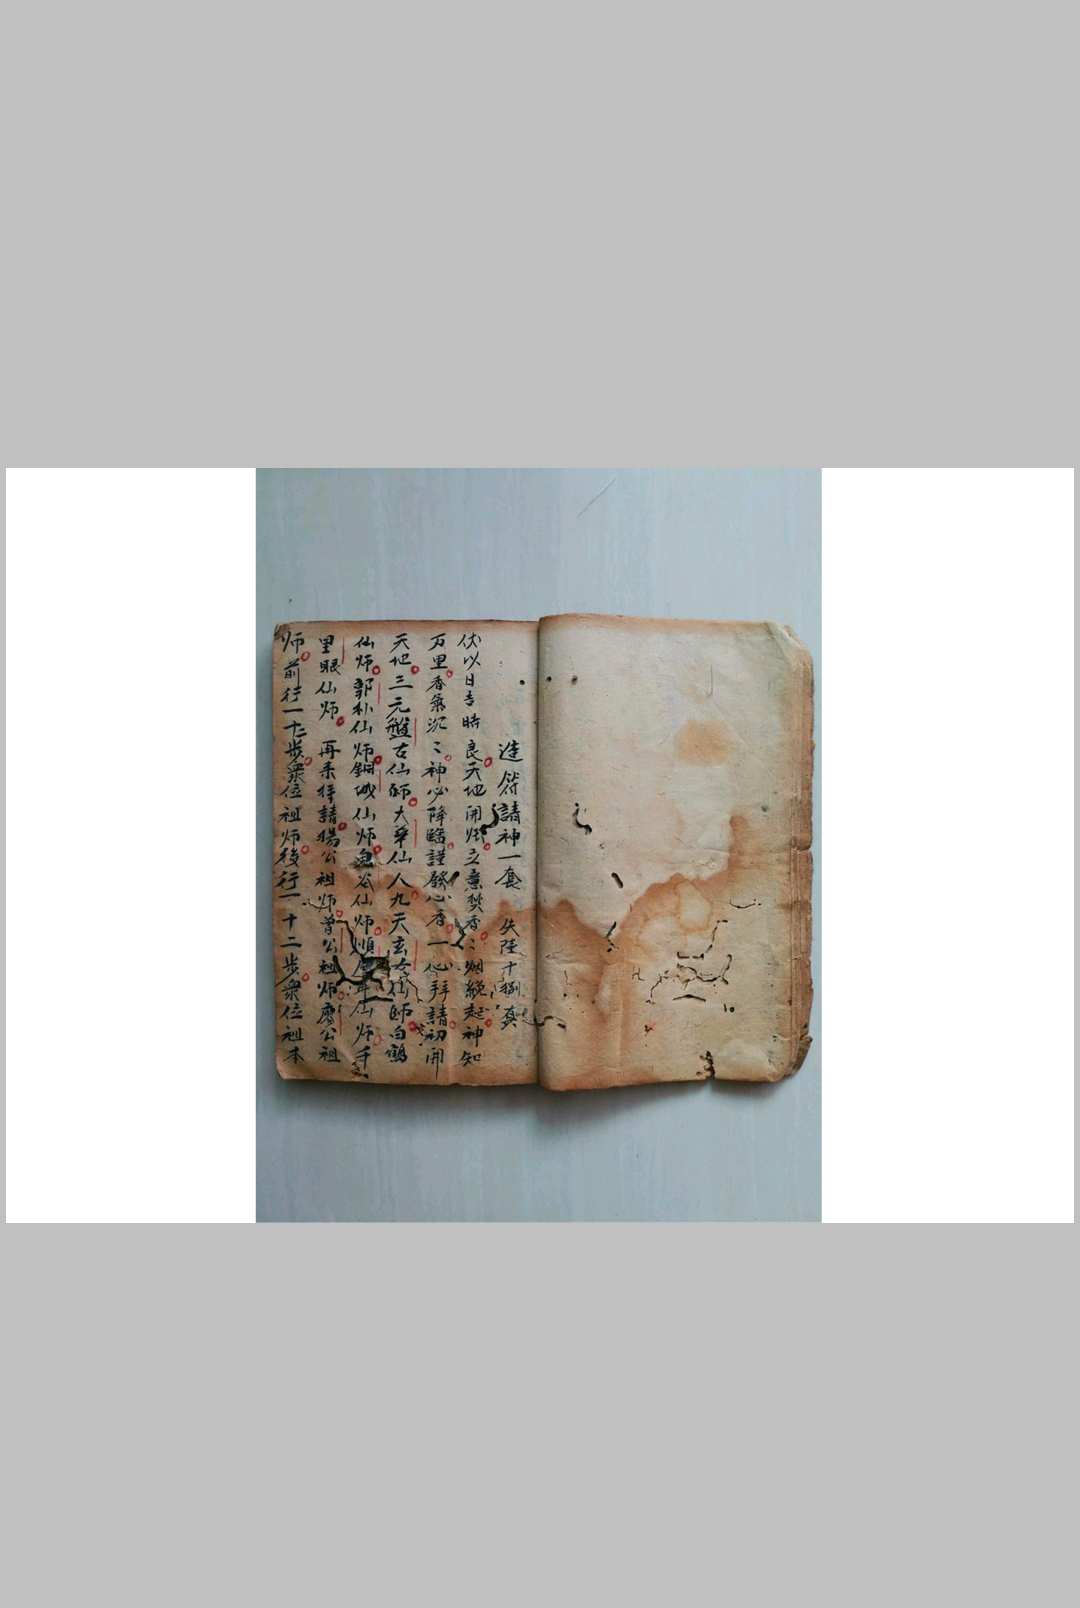 造符請神一套 失陸十捌真
伏以日吉時良天地開 立意焚香〻烟繞起神知
万里香氣沉〻神必降臨謹發心香一心拜請初開
天地三元盤古仙師大華仙人九天玄女仙師白鶴
仙师郭朴仙师銅城仙师鬼谷仙师 仙师千
里眼仙师再来拜請楊公祖师曾公祖师廖公祖
师前行一十二步衆位祖师後行一十二步衆位祖本